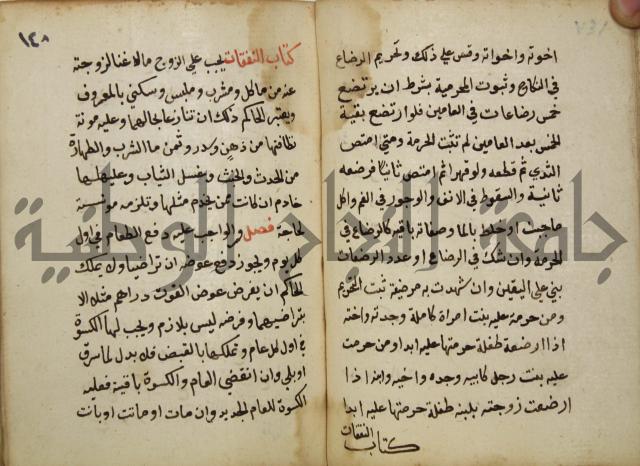 اخوته واخواته وقس على ذلك وتحريم الرضاع
في النكاح وثبوت المحرمية بشرط ان يرتضع
خمس رضاعات في العامين فلو ارتضع بقية
الخمس بعد العامين لم تثبت الحرمة ومتى امتص
الثدي ثم قطعه ولو قهرا ثم امتص ثانيا فرضعة
ثانية والسعوط في الانف والوجور في الفم واكل
ما جبن او خلط بالما وصفاته باقية كالرضاع في
الحرمة وان شك في الرضاع او عدد الرضعات
بني على اليقين وان شهدت به مرضية ثبت التحريم
ومن حرمت عليه بنت امراة كامه وجدته واخته
اذا ارضعة طفلة حرمتها عليه ابدا ومن حرمت
عليه بنت رجل كابيه وجده واخيه وابنه اذا
ارضعت زوجته بلبنه طفلة حرمتها عليه ابدا
كتاب النفقات
١٤٨
كتاب النفقات يجب على الزوج ما لا غنا لزوجته
عنه من ماكل ومشرب وملبس وسكنى بالمعروف
ويعتبر الحاكم ذلك ان تنازعا بحالهما وعليه مونة
نظافتها من دهن وسدر وثمن ما الشرب والطهارة
من الحدث والخبث وغسل الثياب وعليه لها
خادم ان كانت ممن يخدم مثلها وتلزمه مونسة
لحاجة فصل والواجب عليه دفع الطعام في اول
كل يوم ويجوز دفع عوضه ان تراضيا ولا يملك
الحاكم ان يفرض عوض القوت دراهم مثلا الا
بتراضيهما وفرضه ليس بلازم ويجب لها الكسوة
في اول كل عام وتملكها بالقبض فلا بدل لما سرق
او بلي وان انقضى العام والكسوة باقية فعليه
الكسوة للعام الجديد وان مات او ماتت او بانت
جامعة النجاح الوطنية